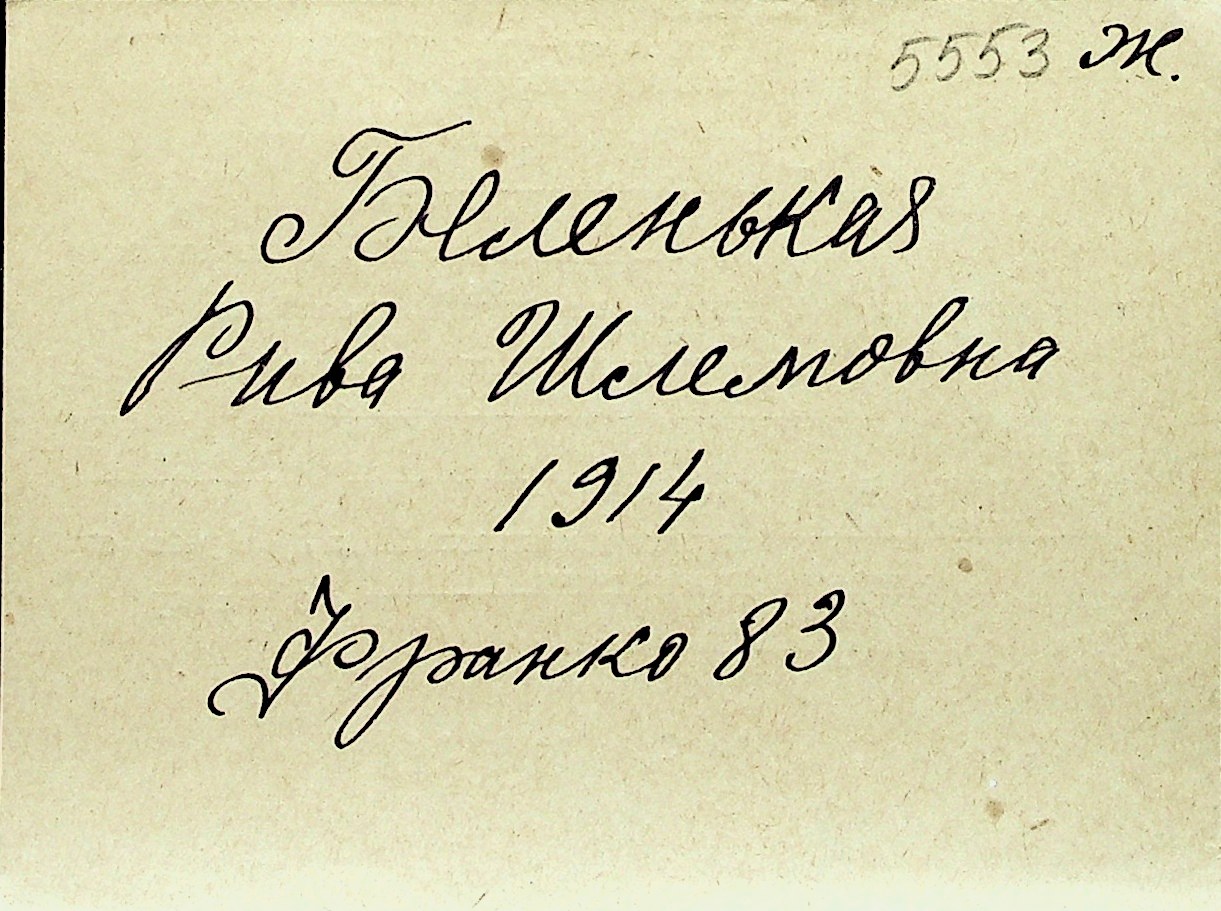 5553 Ж.
Беленькая
Рива Шлемовна
1914
Франко 83